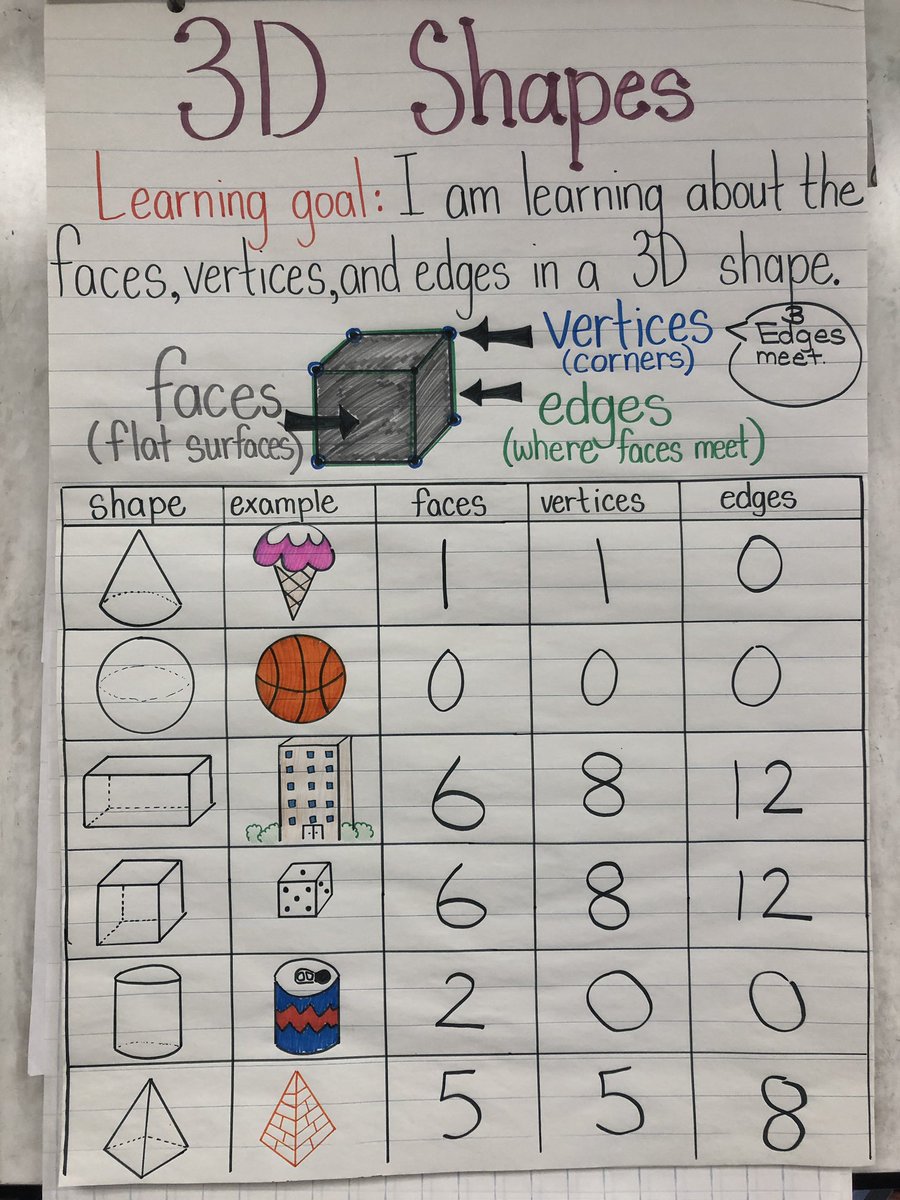 3D Shapes
Learning goal: I am learning about the
faces, vertices, and edges in a 3D shape.
vertices
(corners)
3
Edges
meet.
faces
(flat surfaces)
edges
(where faces meet)
shape example faces vertices edges
1 1 0
0 0 0
6 8 12
6 8 12
2 0 0
5 5 8